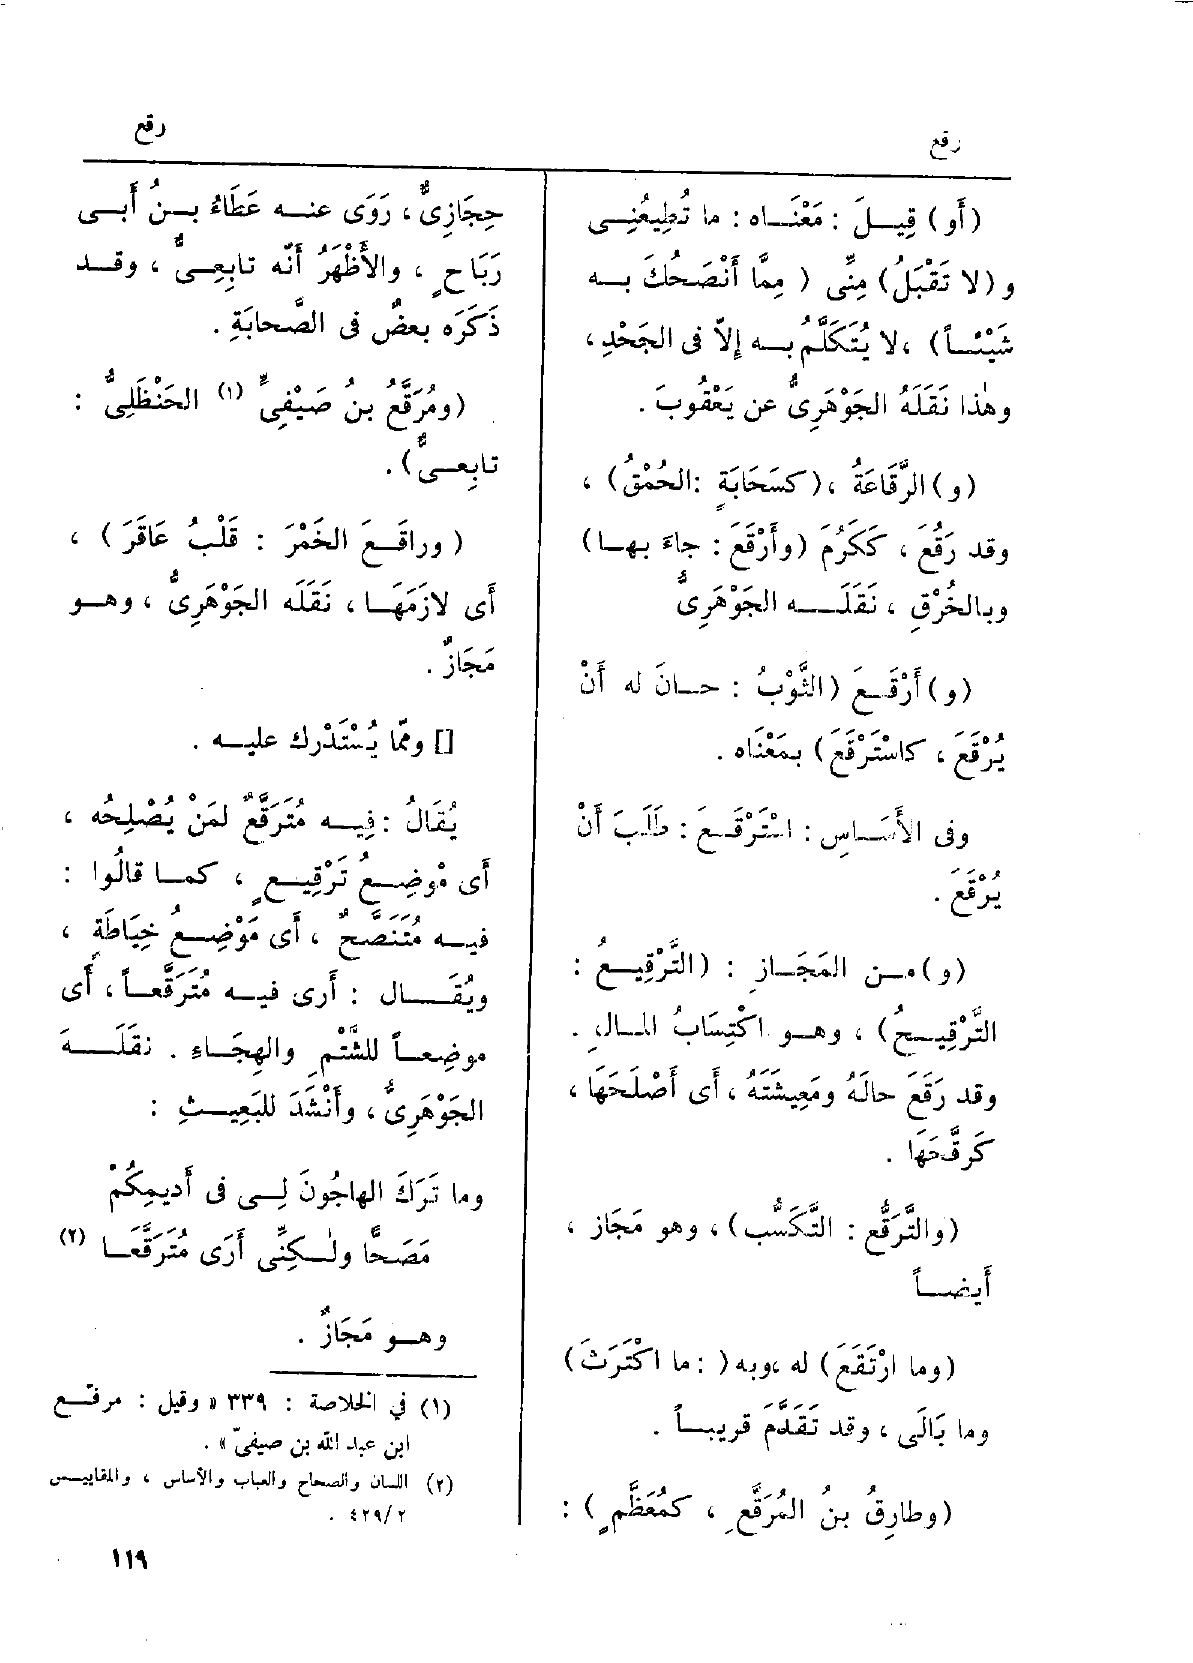 رقع
رقع
(أو) قِيلَ : مَعْنَاه : ما تُطِيعُنِى
و (لا تَقْبَلُ) مِنِّى ( مِمَّا أَنْصَحُكَ به
شَيْئاً) ، لا يُتَكَلَّمُ به إلاّ فى الجَحْدِ ،
وهٰذا نَقَلَهُ الجَوْهَرِىُّ عن يَعْقُوبَ .
(و) الرَّقَاعَةُ ، (كسَحَابَةٍ : الحُمْقُ) ،
وقد رَقُعَ ، ككَرُمَ (وأَرْقَعَ : جاءَ بها)
وبالخُرْقِ ، نَقَلَه الجَوْهَرِىُّ
(و) أَرْقَعَ (الثَّوْبُ : حانَ له أَنْ
يُرْقَعَ ، كاسْتَرْقَعَ) بمَعْنَاه .
وفى الأَسَاسِ : اسْتَرْقَعَ : طَلَبَ أَنْ
يُرْقَعَ .
(و) من المَجَازِ : (التَّرْقِيعُ :
التَّرْقِيحُ) ، وهو اكْتِسَابُ المالِ .
وقد رَقَعَ حالَهُ ومَعِيشَتَهُ ، أى أَصْلَحَهَا ،
كَرقَّحَهَا .
(والتَّرَقُّع : التَّكَسُّب) ، وهو مَجَاز ،
أَيضاً
(وما ارْتَقَعَ) له ،وبه ( : ما اكْتَرَثَ)
وما بَالَى ، وقد تَقَدَّمَ قريباً .
(وطارِقُ بنُ المُرَقَّعِ ، كمُعَظَّمٍ) :
حِجَازِىٌّ ، رَوَى عنه عَطَاءُ بنُ أَبى
رَبَاحٍ ، والأَظْهَرُ أَنّه تابِعِىٌّ ، وقد
ذَكَرَه بعضٌ فى الصَّحابَةِ .
(ومُرَقَّعُ بنُ صَيْفِىٍّ (١) الحَنْظَلِىُّ :
تابِعىٌّ) .
( وراقَعَ الخَمْرَ : قَلْبُ عَاقَرَ ) ،
أى لازَمَهَا ، نَقَلَه الجَوْهَرِىُّ ، وهو
مَجَازٌ .
[] وممّا يُسْتَدْرك عليه .
يُقَالُ : فِيه مُتَرَقَّعٌ لمَنْ يُصْلِحُه ،
أى مْوضِعُ تَرْقِيعٍ ، كما قالُوا :
فيه مُتَنَصَّحٌ ، أى مَوْضِعُ خِيَاطَةٍ ،
ويُقَال : أرى فيه مُتَرَقَّعاً ، أى
موضِعاً للشَّتْمِ والهِجَاءِ . نقَلَهَ
الجَوْهَرِىُّ ، وأَنْشَدَ للبَعِيثِ :
وما تَرَكَ الهاجُونَ لِى فى أَديمِكُمْ
مَصَحًّا ولٰكِنِّى أَرَى مُتَرَقَّعَا (٢)
وهو مَجَازٌ .
(١) في الخلاصة : ٣٣٩ « وقيل : مرقع
ابن عبد الله بن صيفىّ » .
(٢) اللسان والصحاح والعباب والأساس ، والمقاييس
٤٢٩/٢ .
١١٩